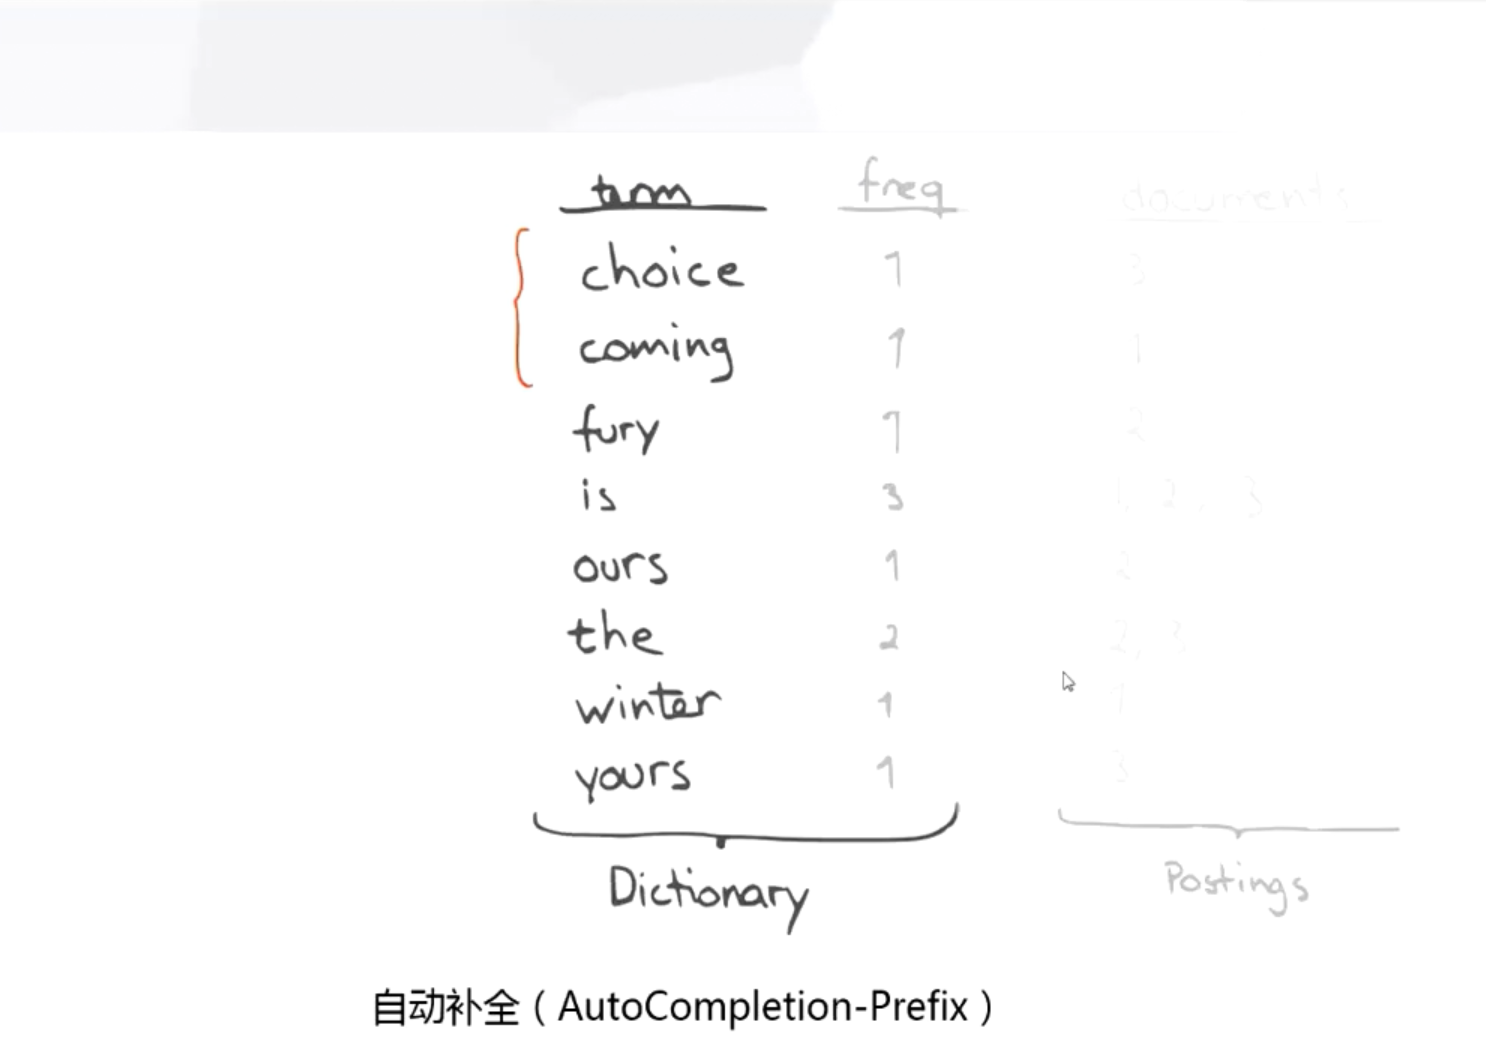 term freq documents
choice 1 3
coming 1 1
fury 1 2
is 3 1, 2, 3
ours 1 2
the 2 2, 3
winter 1 1
yours 1 3
Dictionary Postings
自动补全（AutoCompletion-Prefix）